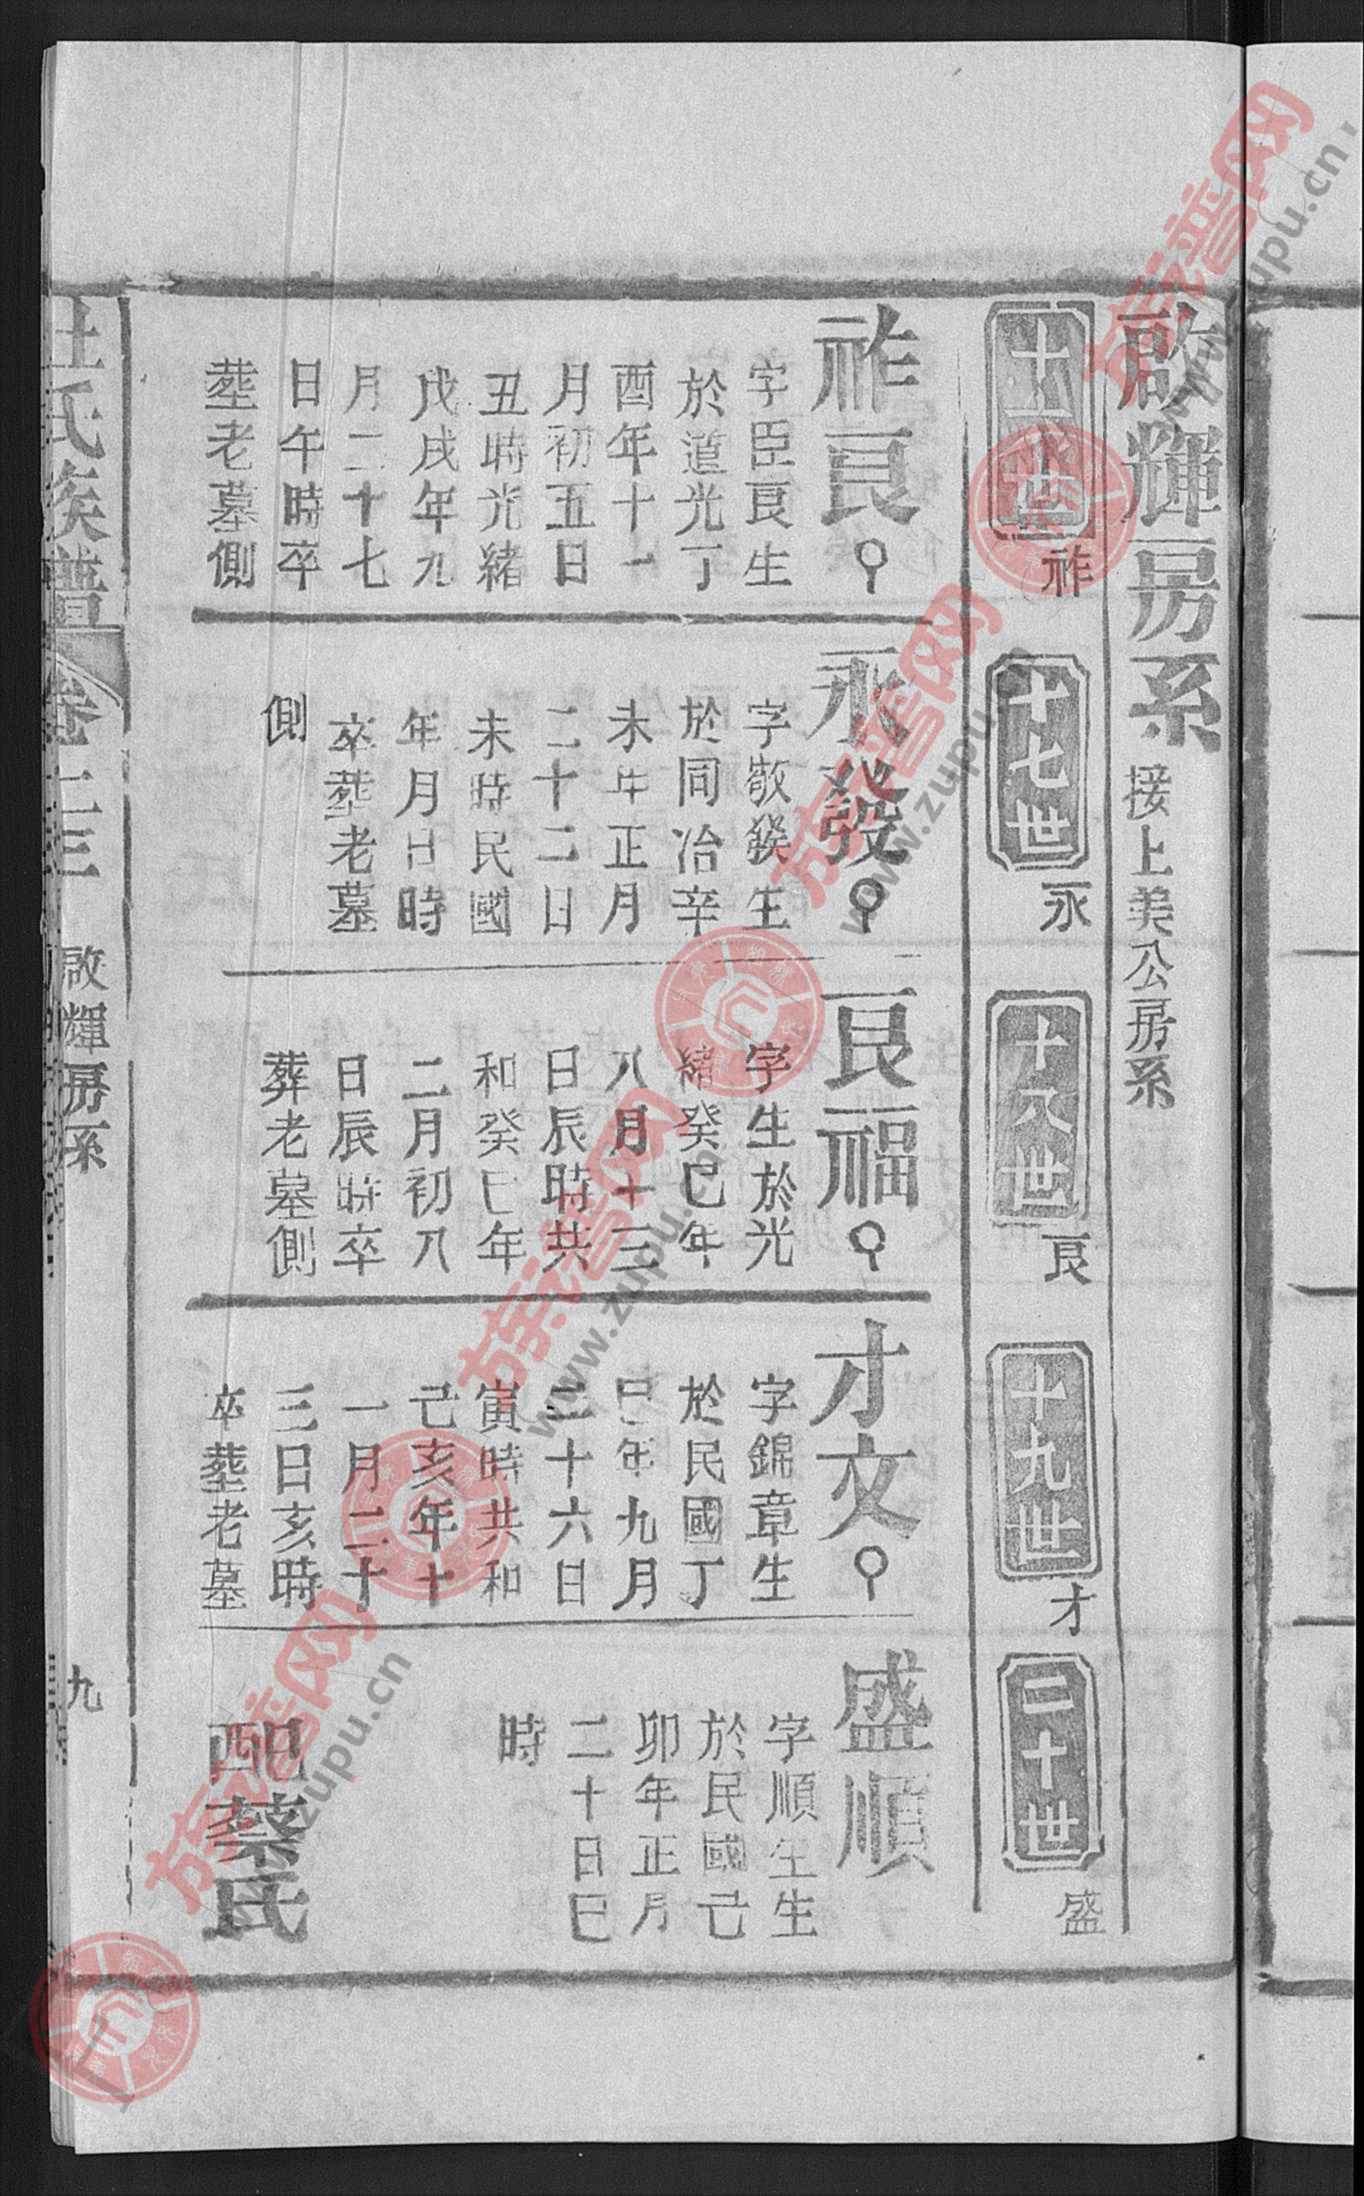 啟輝房系 接上美公房系
十六世 祚
十七世 永
十八世 良
十九世 才
二十世 盛
祚良
字臣良生
於道光丁
酉年十一
月初五日
丑時光緒
戊戌年九
月二十七
日午時卒
塟老墓側
永發
字敬發生
於同治辛
未年正月
二十二日
未時民國
年月日時
卒塟老墓
側
良福
字生於光
緒癸巳年
八月十三
日辰時共
和癸巳年
二月初八
日辰時卒
葬老墓側
才文
字錦章生
於民國丁
巳年九月
二十六日
寅時共和
己亥年十
一月二十
三日亥時
卒塟老墓
盛順
字順生生
於民國己
卯年正月
二十日巳
時
配蔡氏
杜氏族譜
卷十三
啟輝房系
九
族谱网
www.zupu.cn
族谱网
www.zupu.cn
族谱网
www.zupu.cn
族谱网
www.zupu.cn